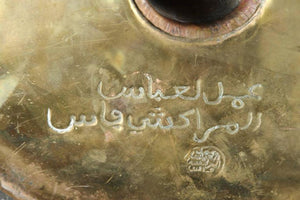 عمل لعباس
المراكشي فاس